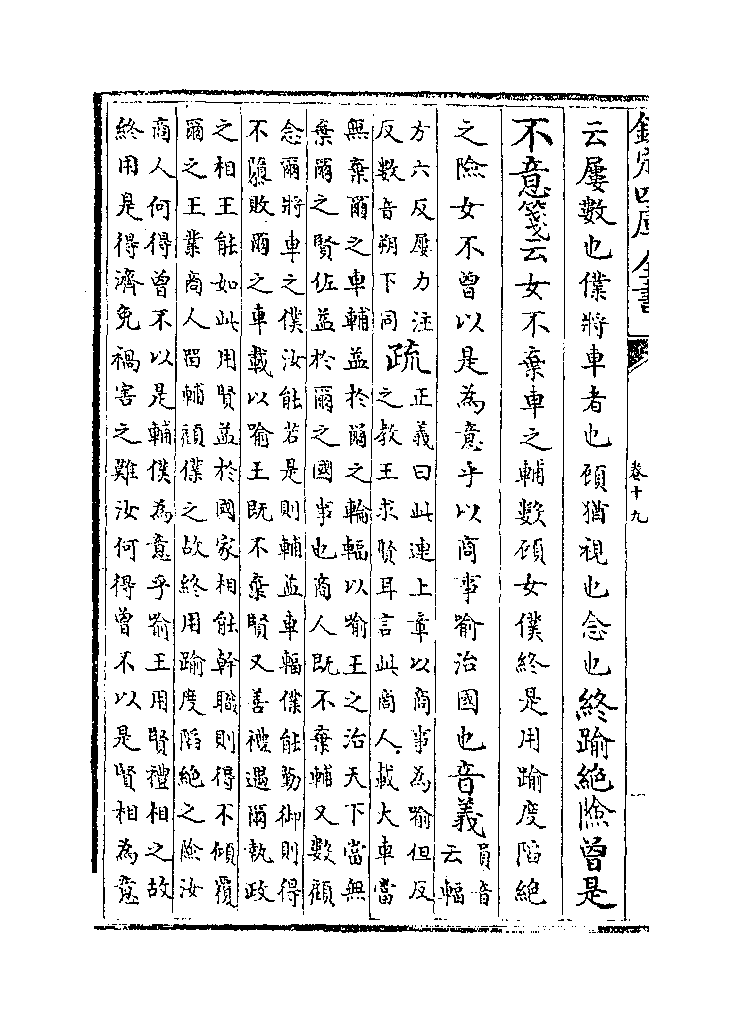 欽定四庫全書
卷十九
云屢數也僕將車者也顧猶視也念也終踰絶險曾是
不意箋云女不棄車之輔數顧女僕終是用踰度陷絶
之險女不曾以是為意乎以商事喻治國也音義員音
云輻
方六反屢力注
反數音朔下同
疏正義曰此連上章以商事為喻但反
之教王求賢耳言此商人載大車當
無棄爾之車輔益於爾之輪輻以喻王之治天下當無
棄爾之賢佐益於爾之國事也商人既不棄輔又數顧
念爾將車之僕汝能若是則輔益車輻僕能勤御則得
不隳敗爾之車載以喻王既不棄賢又善禮遇爾執政
之相王能如此用賢益於國家相能幹職則得不傾覆
爾之王業商人留輔顧僕之故終用踰度陷絶之險汝
商人何得曾不以是輔僕為意乎喻王用賢禮相之故
終用是得濟免禍害之難汝何得曾不以是賢相為意